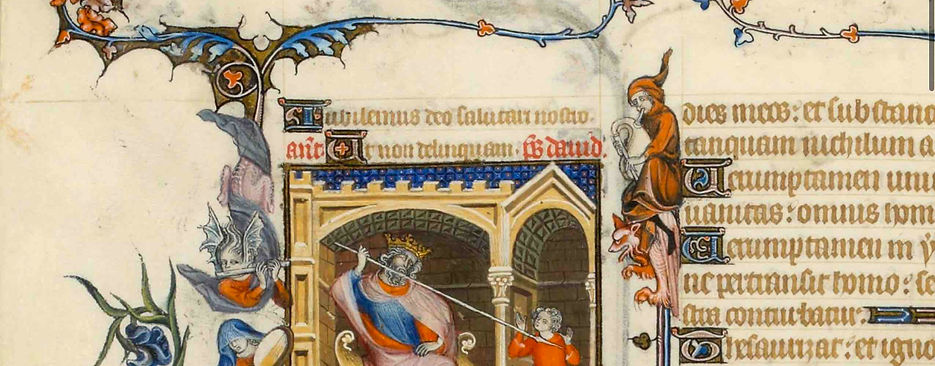 Jubilemus deo salutari nostro.
añt. Ut non delinquam. ps̄ david.
dies meos: et substanc
tanquam nichilum a
Uerumptamen uni
uanitas: omnis hom
Uerumptamen in ẏ
ne pertransit homo: se
stra conturbatur:
Thesaurizat: et igno